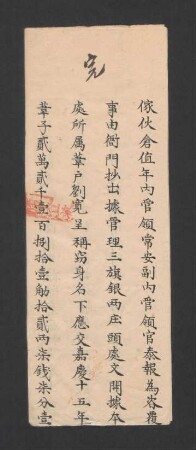 完
傢伙倉值年內管領常安副內管領官泰報為咨覆
事由衙門抄出據管理三旗銀兩庄頭處文開據本
處所屬葦户劉寬呈稱竊身名下應交嘉慶十五年
葦子貳萬貳千壹百捌拾壹觔拾貳兩柒錢柒分壹